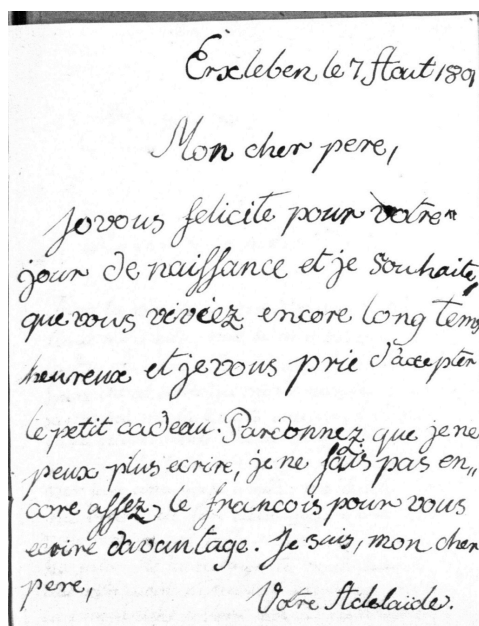 Erxleben le 7 Aout 1801
Mon cher pere,
Je vous felicite pour votre
jour de naissance et je souhaite,
que vous viviez encore long tems
heureux et je vous prie d'accepter
le petit cadeau. Pardonnez que je ne
peux plus ecrire, je ne sais pas en„
core assez le francois pour vous
ecrire davantage. Je suis, mon cher
pere,
Votre Adelaïde.